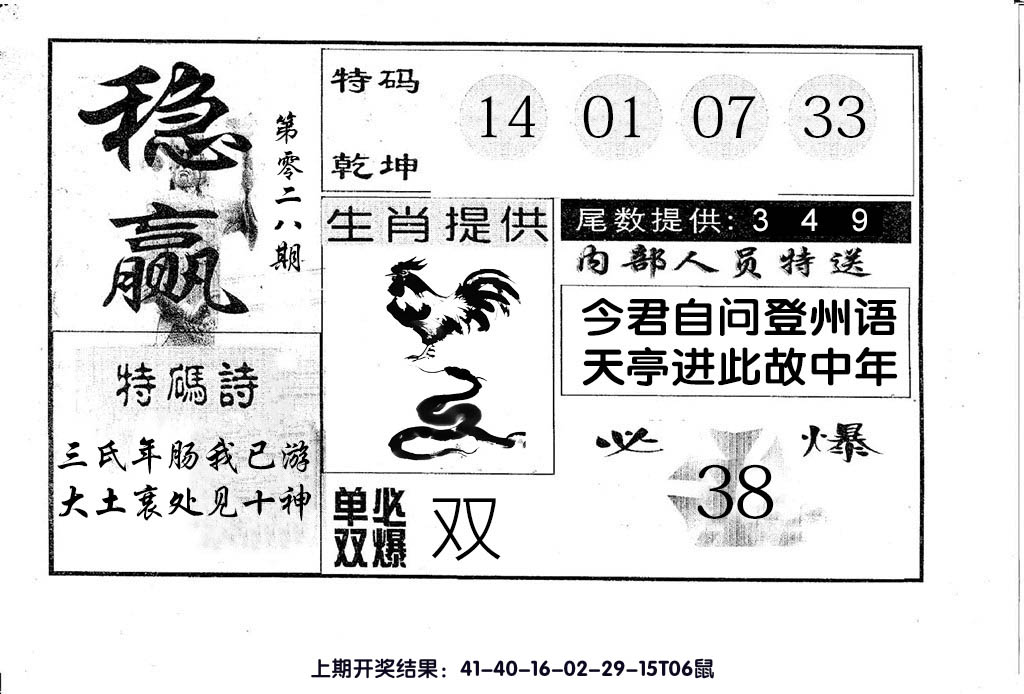 稳赢
第零二八期
特码
乾坤
14 01 07 33
生肖提供
尾数提供: 3 4 9
内部人员特送
今君自问登州语
天亭进此故中年
特碼詩
三氏年肠我已游
大土衰处见十神
必爆
38
单双必爆
双
上期开奖结果：41-40-16-02-29-15T06鼠